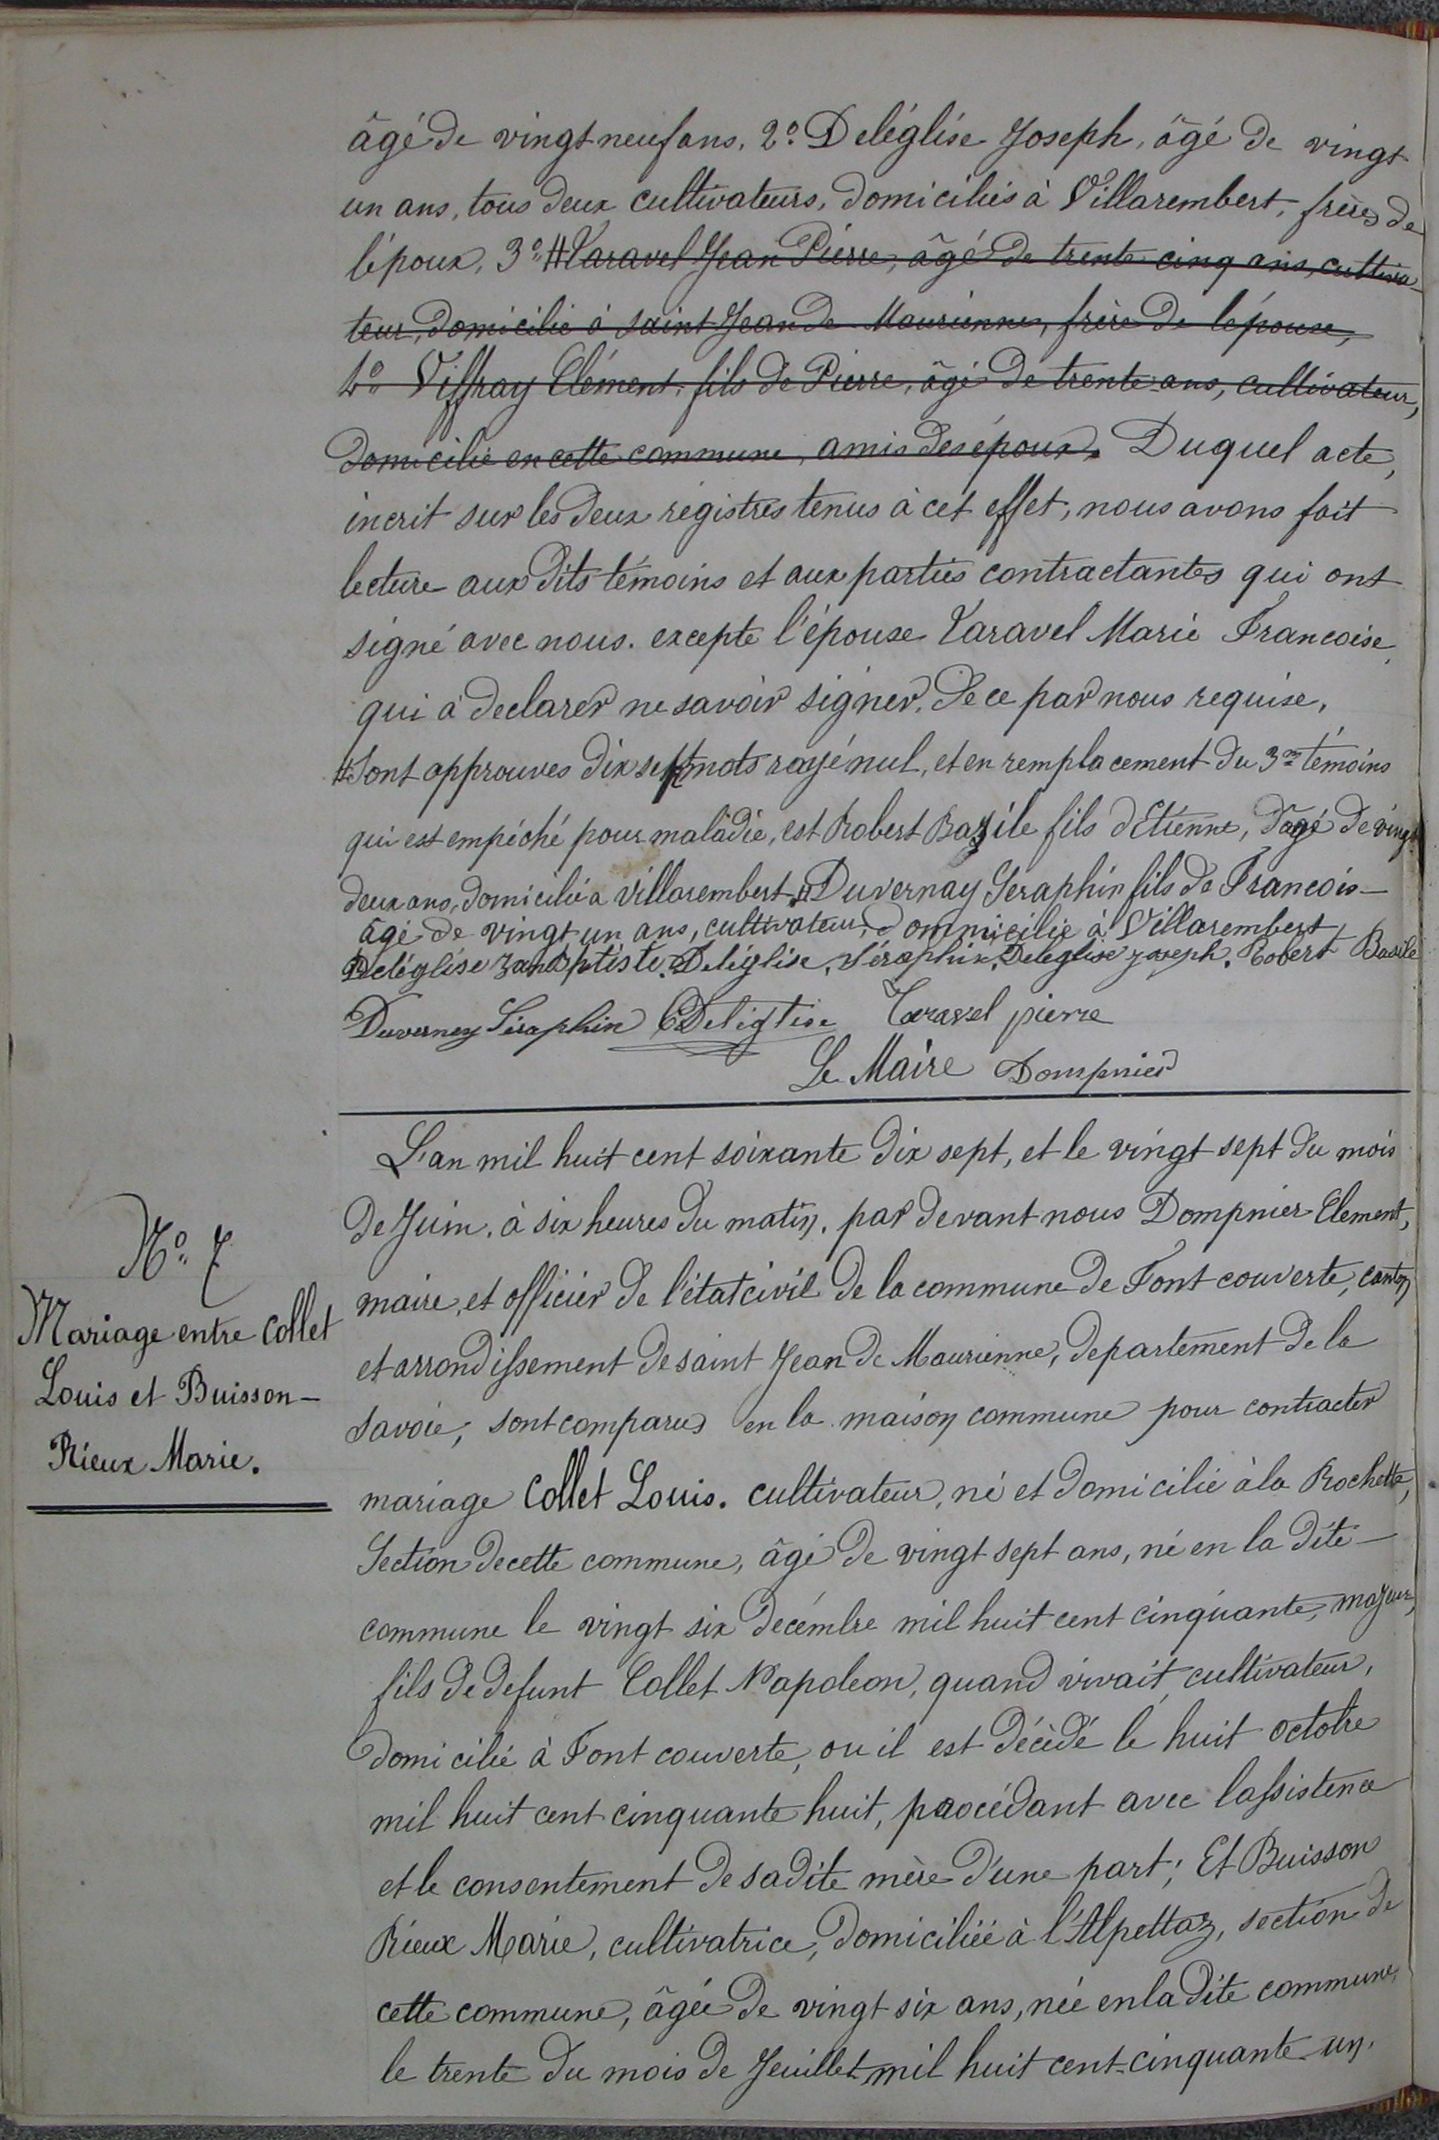 âgé de vingt neuf ans, 2° Deléglise Joseph, âgé de vingt
un ans, tous deux cultivateurs, domiciliés à Villarembert, frères de
l'époux, 3° # Taravel Jean Pierre, âgé de trente cinq ans, cultiva-
teur, domicilié à saint Jean de Maurienne, frère de l'épouse,
4° Viffray Clément, fils de Pierre, âgé de trente ans, cultivateur,
domicilié en cette commune, amis des époux. Duquel acte,
incrit sur les deux régistres tenus à cet effet, nous avons fait
lecture aux dits témoins et aux parties contractantes qui ont
signé avec nous. excepte l'épouse Taravel Marie Francoise,
qui à declarer ne savoir signer, de ce par nous requise,
# Sont approuves dix sept mots rayé nul, et en remplacement du 3me témoins
qui est empéché pour maladie, est Robert Bazile fils d'Etienne, d'agé de vingt
deux ans, domicilié a villarembert, # Duvernay Seraphin fils de Francois-
âgé de vingt un ans, cultivateur, dommicilié à Villarembert
Deléglise Jan Bptiste. Deléglise, Séraphin. Deleglise joseph. Robert Basile
Duverney Séraphin C Deléglise Taravel pierre
Le Maire Dompnier
L'an mil huit cent soixante dix sept, et le vingt sept du mois
de Juin, à six heures du matin, par devant nous Dompnier Element,
maire, et officier de l'état civil de la commune de Font couverte, canton
et arrondissement de saint Jean de Maurienne, departement de la
savoie, sont comparus en la maison commune pour contracter
mariage Collet Louis. cultivateur, né et domicilié à la Rochette,
Section de cette commune, âgé de vingt sept ans, né en la dite-
commune le vingt six decémbre mil huit cent cinquante, majeur,
fils de defunt Collet Napoleon, quand vivait cultivateur,
domicilié à Font couverte, ou il est décèdé le huit octobre
mil huit cent cinquante huit, procédant avec lassistence
et le consentement de sa dite mère d'une part; Et Buisson
Rieux Marie, cultivatrice, domiciliée à l'Alpettaz, section de
cette commune, âgée de vingt six ans, née en la dite commune
le trente du mois de Jeuillet mil huit cent cinquante un.
N° 7
Mariage entre Collet
Louis et Buisson-
Rieux Marie.